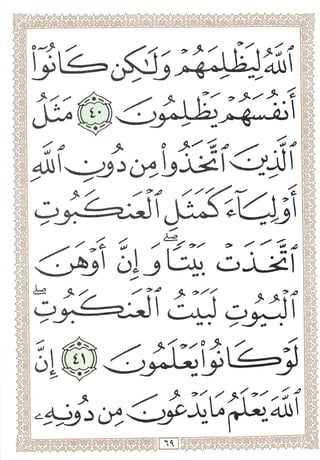 ٱللَّهُ لِيَظْلِمَهُمْ وَلَٰكِن كَانُوٓا۟
أَنفُسَهُمْ يَظْلِمُونَ ٤٠ مَثَلُ
ٱلَّذِينَ ٱتَّخَذُوا۟ مِن دُونِ ٱللَّهِ
أَوْلِيَآءَ كَمَثَلِ ٱلْعَنكَبُوتِ
ٱتَّخَذَتْ بَيْتًاۖ وَإِنَّ أَوْهَنَ
ٱلْبُيُوتِ لَبَيْتُ ٱلْعَنكَبُوتِۖ
لَوْ كَانُوا۟ يَعْلَمُونَ ٤١ إِنَّ
ٱللَّهَ يَعْلَمُ مَا يَدْعُونَ مِن دُونِهِۦ
٦٩